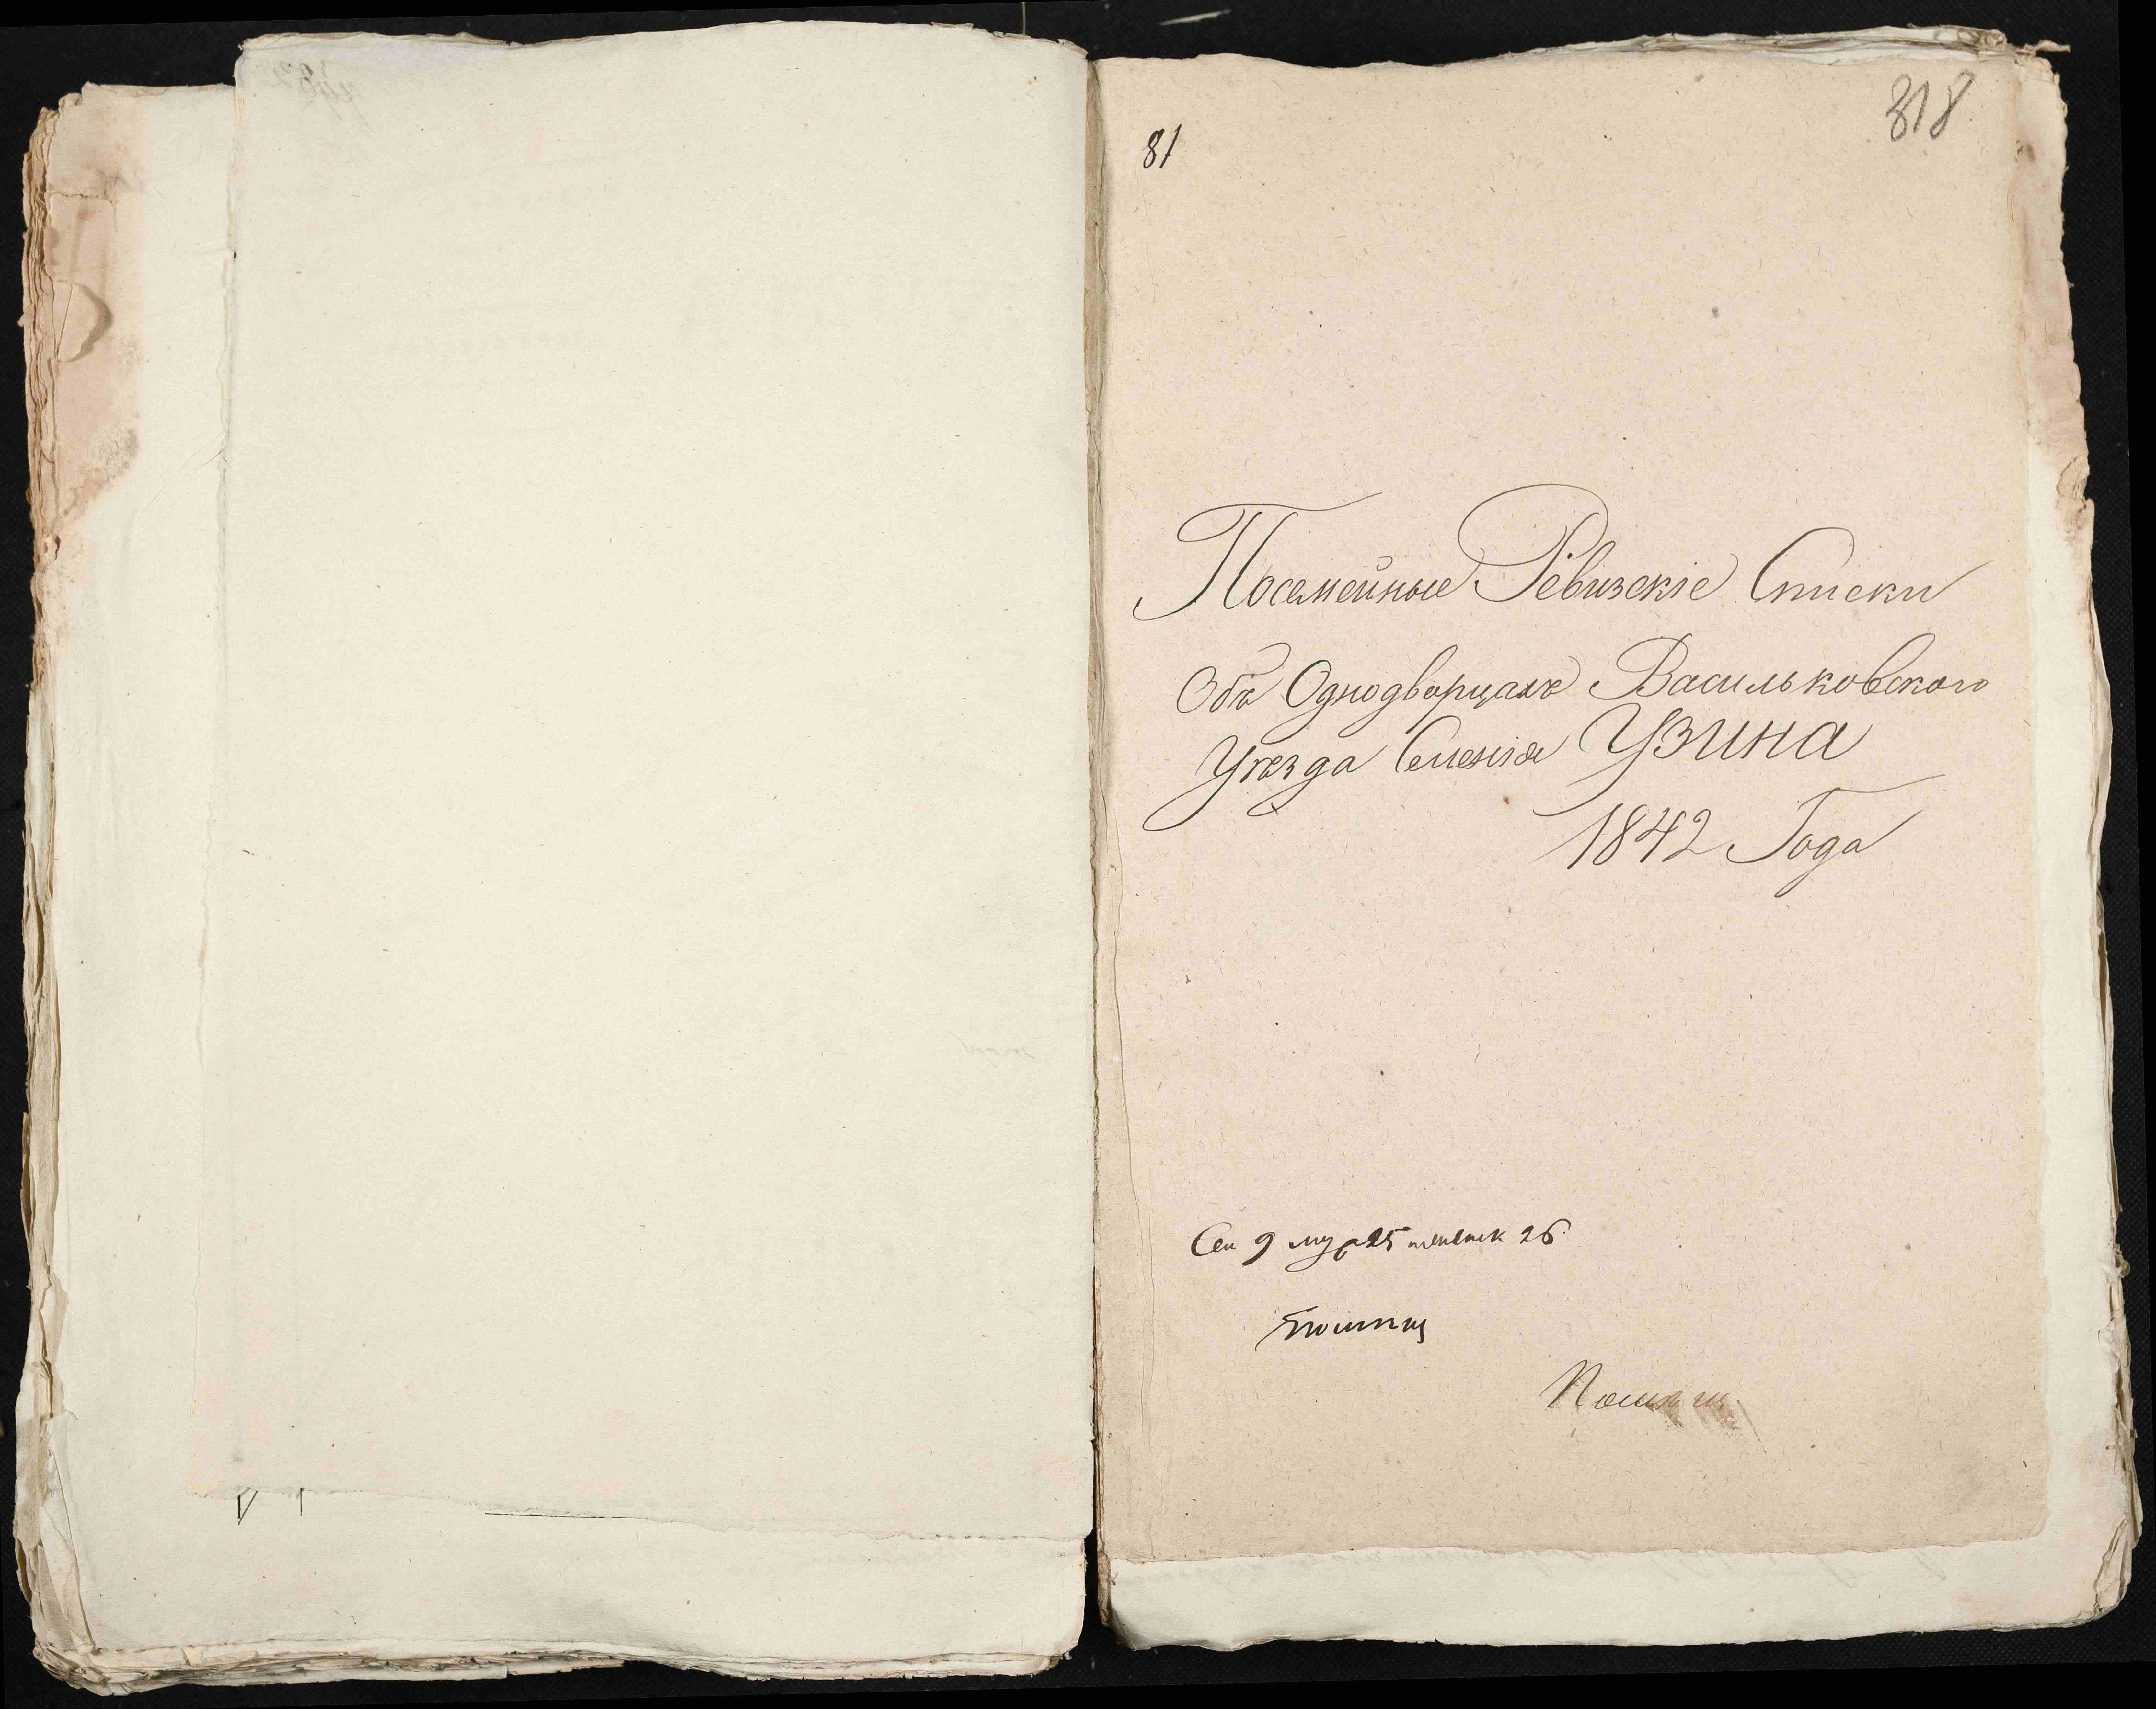 81
318
Посемейные Ревизскіе Списки
Объ Однодворцахъ Васильковского
Уѣзда Селенія Узина
1842 Года
Сем 9 муж 25 женск 26